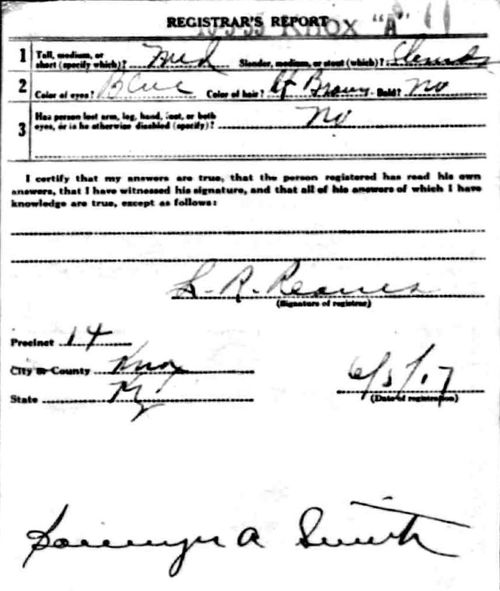 REGISTRAR'S REPORT
KNOX "A"
1 Tall, medium, or short (specify which)? Med Slender, medium, or stout (which)? Slender
2 Color of eyes? Blue Color of hair? Lt Brown Bald? No
3 Has person lost arm, leg, hand, foot, or both eyes, or is he otherwise disabled (specify)? No
I certify that my answers are true, that the person registered has read his own
answers, that I have witnessed his signature, and that all of his answers of which I have
knowledge are true, except as follows:
L. R. Reaves
(Signature of registrar)
Precinct 14
City or County Knox
State Ky
6/5/17
(Date of registration)
A Smith